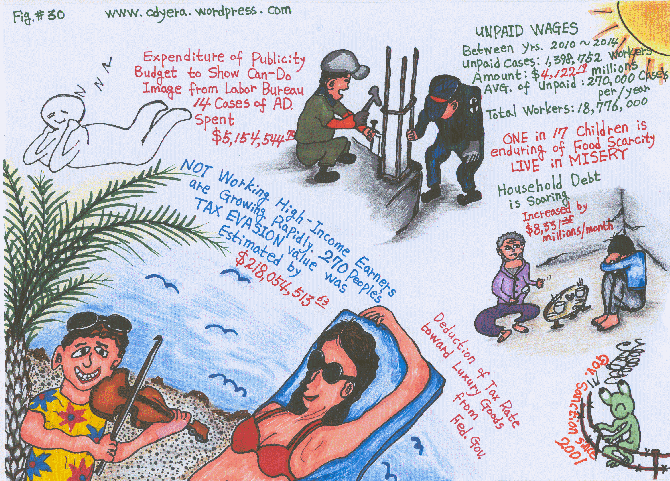 Fig.#30
www.cdyera.wordpress.com
Expenditure of Publicity
Budget to Show Can-Do
Image from Labor Bureau
14 Cases of AD.
Spent
$5,154,544
UNPAID WAGES
Between yrs. 2010~2014
Unpaid Cases: 1,398,752 workers
Amount: $4,122 millions
AVG. of Unpaid: 270,000 Cases
per/year
Total Workers: 18,776,000
ONE in 17 Children is
enduring of Food Scarcity
LIVE in MISERY
Household Debt
is Soaring
Increased by
millions/month
z z z
NOT Working High-Income Earners
are Growing Rapidly. 270 Peoples
TAX EVASION value was
Estimated by
$218,054,513
Deduction of Tax Rate
toward Luxury Goods
from
Fed Gov